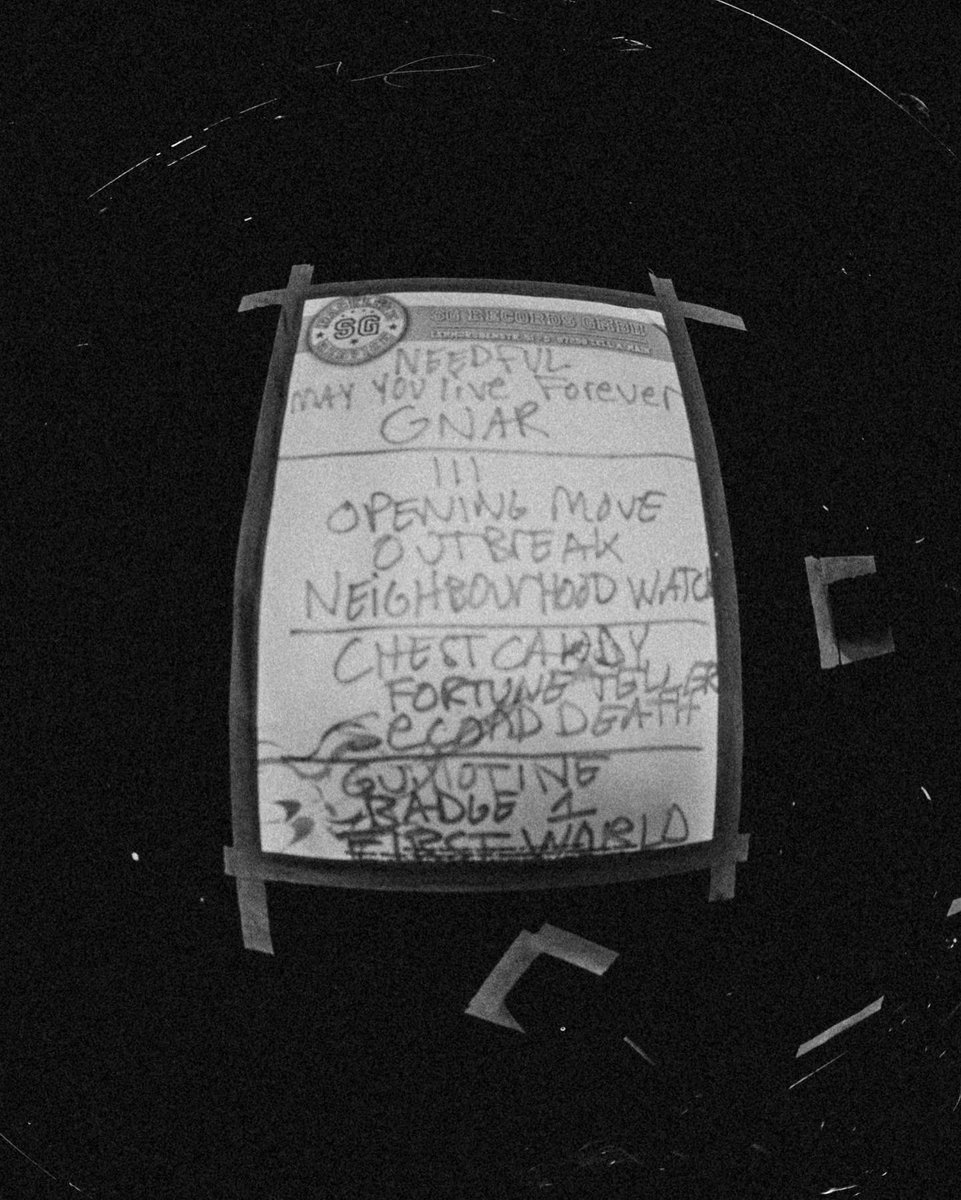 SG
SG RECORDS GMBH
NEEDFUL
MAY YOU live Forever
GNAR
III
OPENING MOVE
OUTBREAK
NEIGHBOURHOOD WATCH
CHEST CANDY
FORTUNE TELLER
SECOND DEATH
GUILLOTINE
BADGE 1
FIRST WORLD